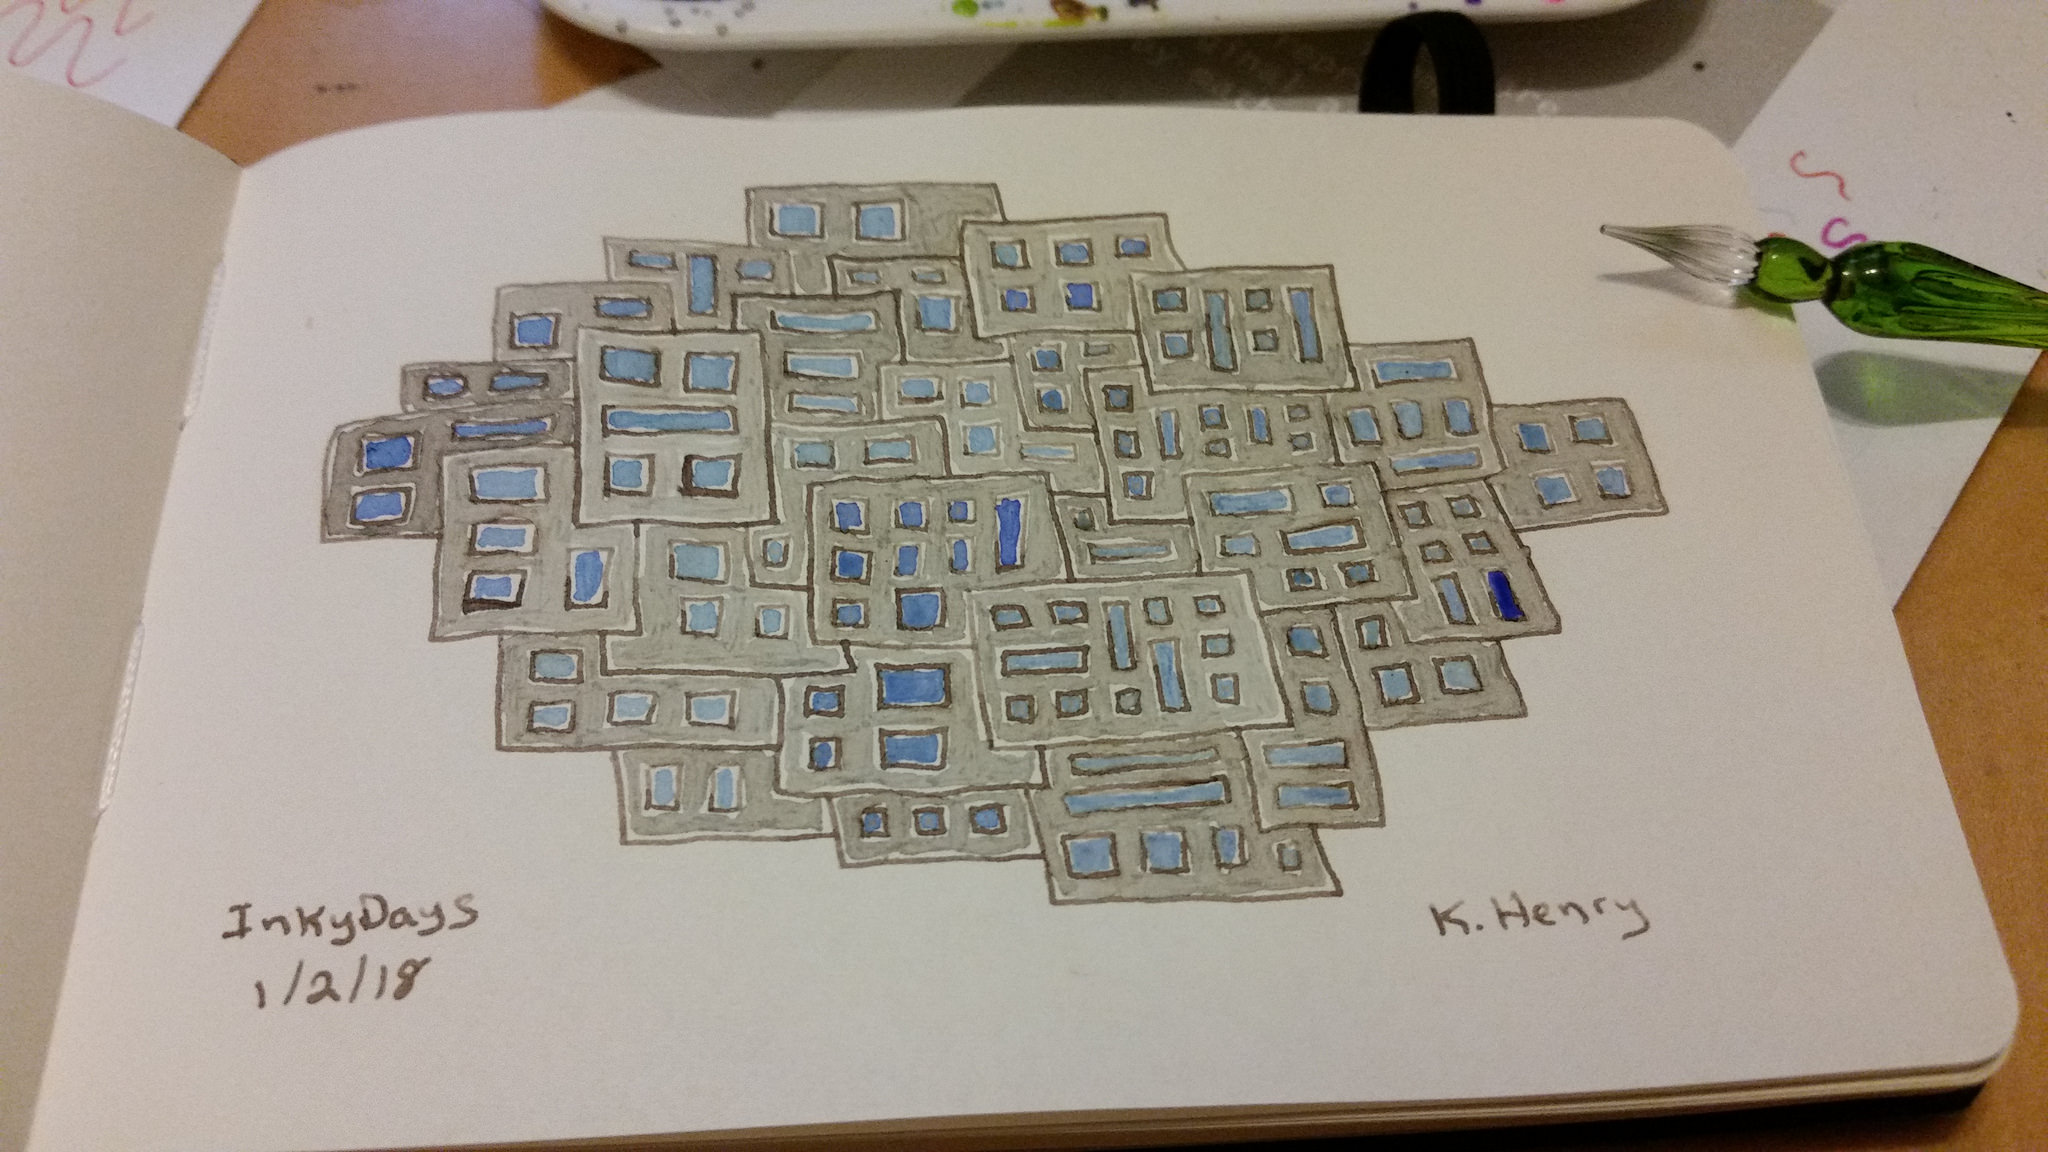 InkyDays
1/2/18
K. Henry